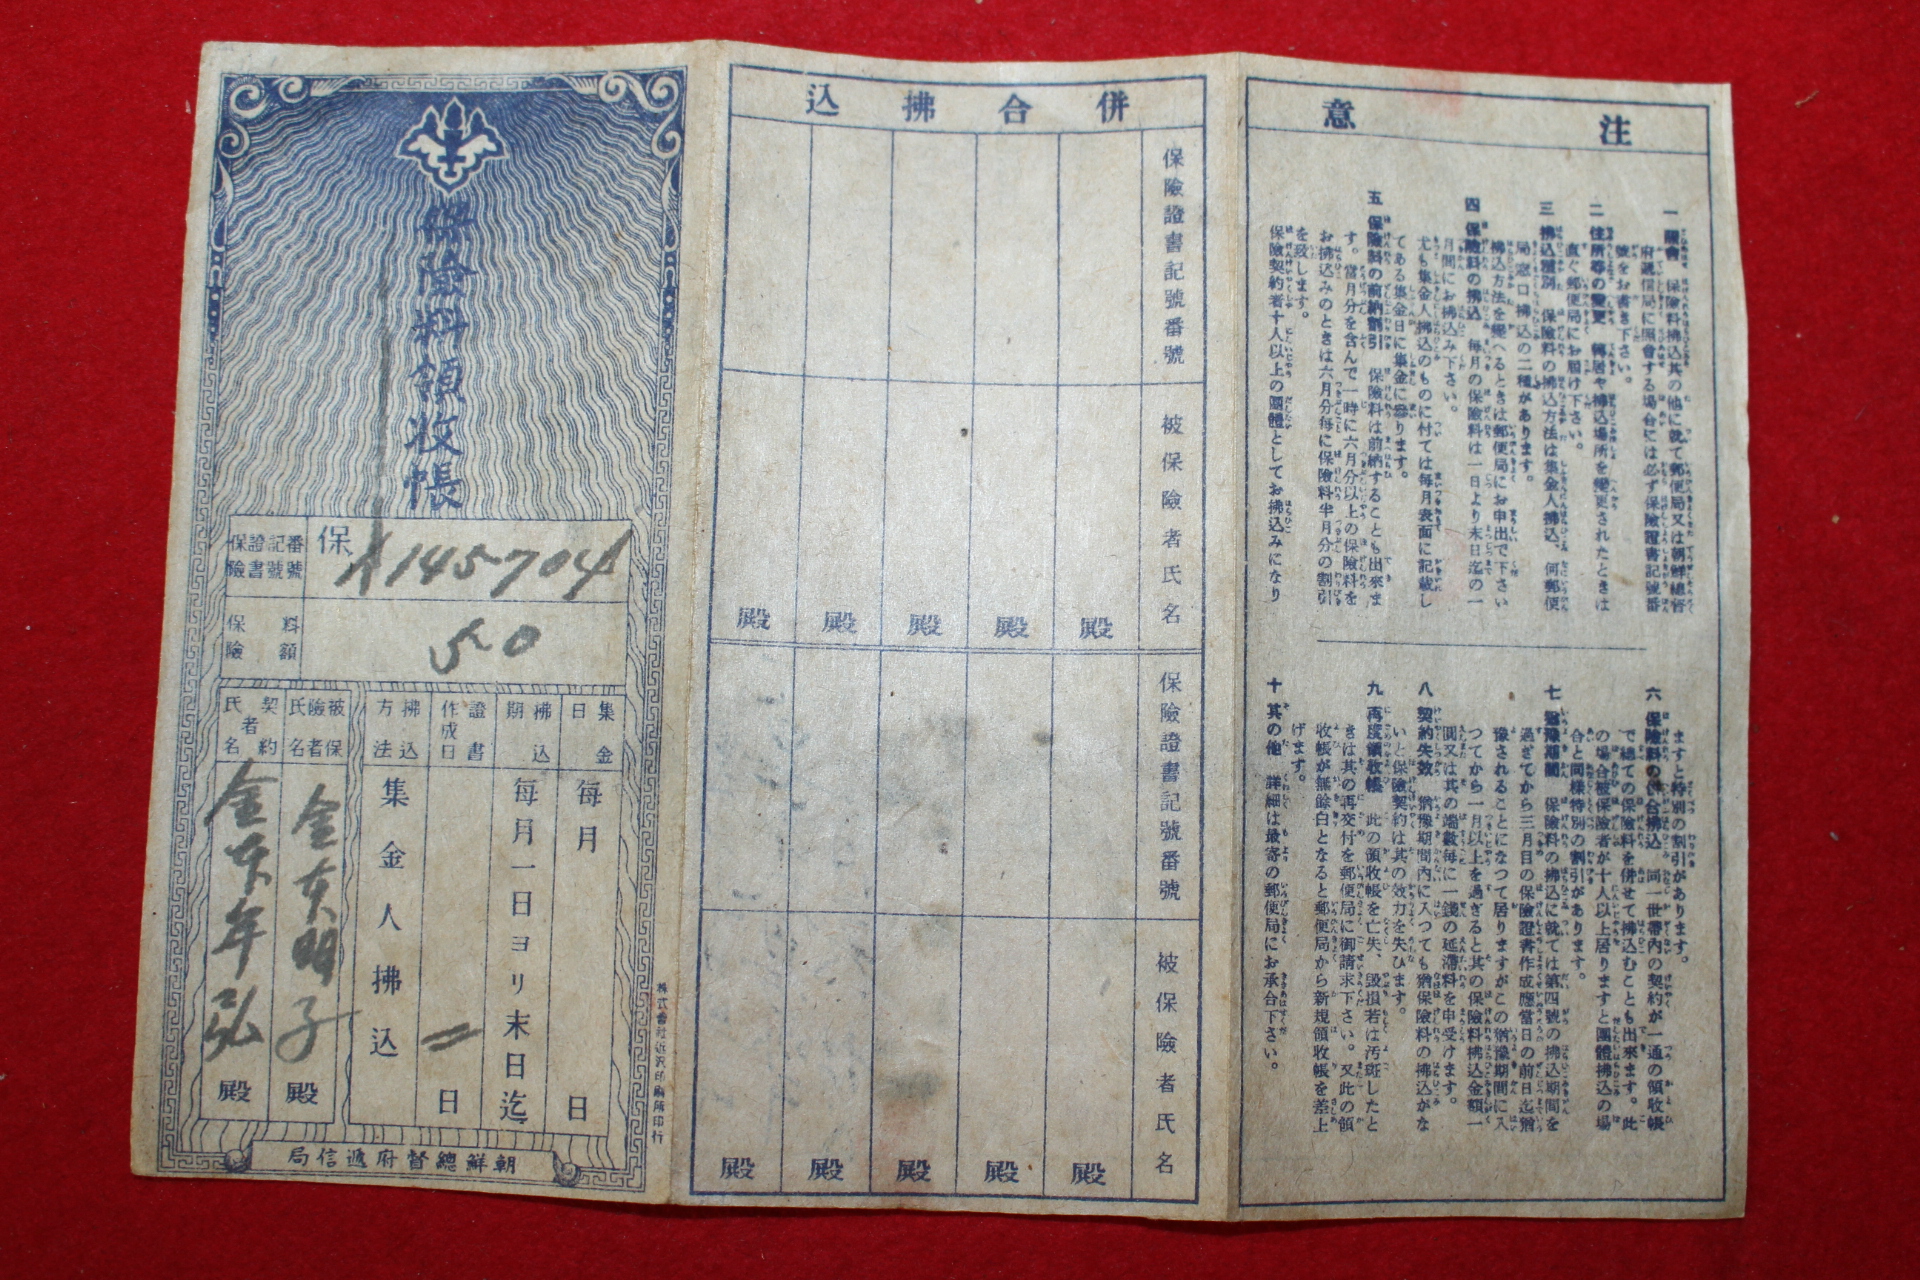 注意
一 照會 保險料拂込其の他に就て郵便局又は朝鮮總督
府遞信局に照會する場合には必ず保險證書記號番
號をお書き下さい。
二 住所等の變更 轉居や拂込場所を變更されたときは
直ぐ郵便局にお届け下さい。
三 拂込種別 保險料の拂込方法は集金人拂込、何郵便
局窓口拂込の二種があります。
拂込方法を變へるときは郵便局にお申出で下さい
四 保險料の拂込 毎月の保險料は一日より末日迄の一
月間にお拂込み下さい。
尤も集金人拂込のものに付ては毎月表面に記載し
てある集金日に集金に參ります。
五 保險料の前納割引 保險料は前納することも出來ま
す。當月分を含んで一時に六月分以上の保險料を
お拂込みのときは六月分毎に保險料半月分の割引
を致します。
保險契約者十人以上の團體としてお拂込みになり
ますと特別の割引があります。
六 保險料の併合拂込 同一世帶內の契約が一通の領收帳
で總ての保險料を併せて拂込むことも出來ます。此
の場合被保險者が十人以上居りますと團體拂込の場
合と同樣特別の割引があります。
七 猶豫期間 保險料の拂込に就ては第四號の拂込期間を
過ぎてから三月目の保險證書作成應當日の前日迄猶
豫されることになつて居りますがこの猶豫期間に入
つてから一月以上を過ぎると其の保險料拂込金額一
圓又は其の端數毎に一錢の延滯料を申受けます。
八 契約失效 猶豫期間內に入つても猶保險料の拂込がな
いと保險契約は其の效力を失ひます。
九 再度領收帳 此の領收帳を亡失、毀損若は汚斑したと
きは其の再交付を郵便局に御請求下さい。又此の領
收帳が無餘白となると郵便局から新規領收帳を差上
げます。
十 其の他 詳細は最寄の郵便局にお承合下さい。
併合拂込
保險證書記號番號
被保險者氏名
殿 殿 殿 殿 殿
保險證書記號番號
被保險者氏名
殿 殿 殿 殿 殿
保險料領收帳
保險證書記號番號
保 A145704
保險料額
50
集金日
毎月 日
拂込期
毎月一日ヨリ末日迄
證書作成日
日
拂込方法
集金人拂込
被保險者氏名
金 明子 殿
契約者氏名
金 年弘 殿
朝鮮總督府遞信局
株式會社近澤印刷所印行